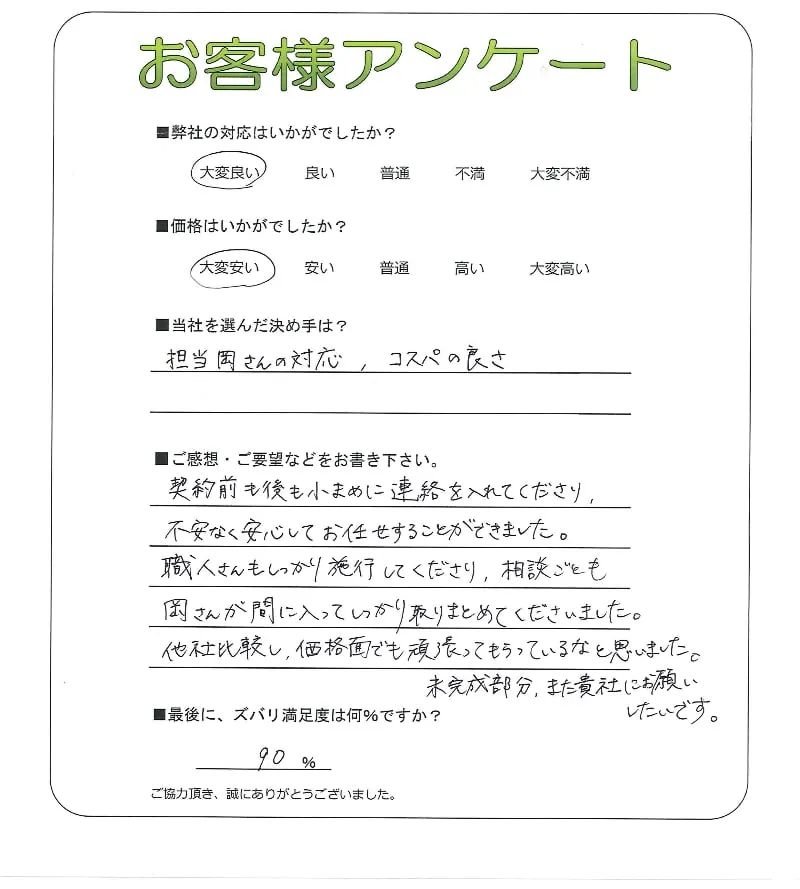 お客様アンケート
■弊社の対応はいかがでしたか？
大変良い 良い 普通 不満 大変不満
■価格はいかがでしたか？
大変安い 安い 普通 高い 大変高い
■当社を選んだ決め手は？
担当岡さんの対応，コスパの良さ
■ご感想・ご要望などをお書き下さい。
契約前も後も小まめに連絡を入れてくださり，
不安なく安心してお任せすることができました。
職人さんもしっかり施行してくださり，相談ごとも
岡さんが間に入ってしっかり取りまとめてくださいました。
他社比較し，価格面でも頑張ってもらっているなと思いました。
未完成部分，また貴社にお願い
したいです。
■最後に、ズバリ満足度は何%ですか？
90 %
ご協力頂き、誠にありがとうございました。